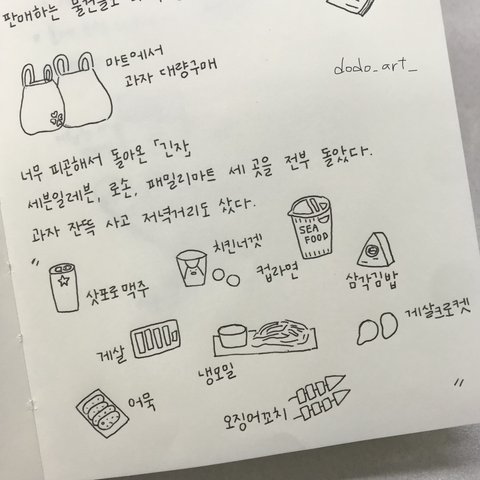 판매하는 물건들도
마트에서
과자 대량구매
dodo_art_
너무 피곤해서 돌아온 「긴자」
세븐일레븐, 로손, 패밀리마트 세 곳을 전부 돌았다.
과자 잔뜩 사고 저녁거리도 샀다.
"
SEA
FOOD
삿포로맥주
치킨너겟
컵라면
삼각김밥
게살
냉모밀
게살크로켓
어묵
오징어꼬치
"